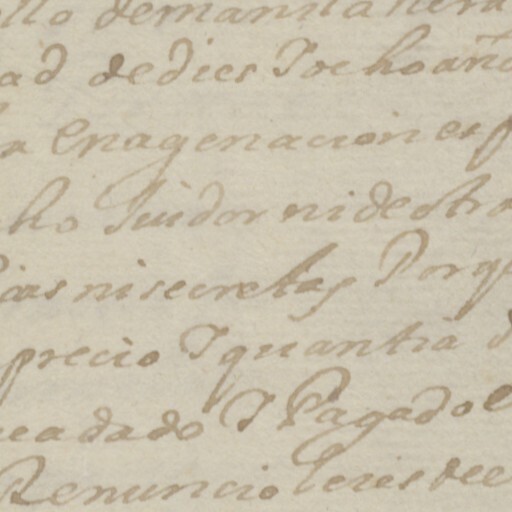 ello demanda nera
ad de dies I ocho año
la Enagenacion es p
cho Tuidor ni de otra
cias ni secretas Por q
precio I quantia d
ea dado I Pagado e
Renuncio leies de e